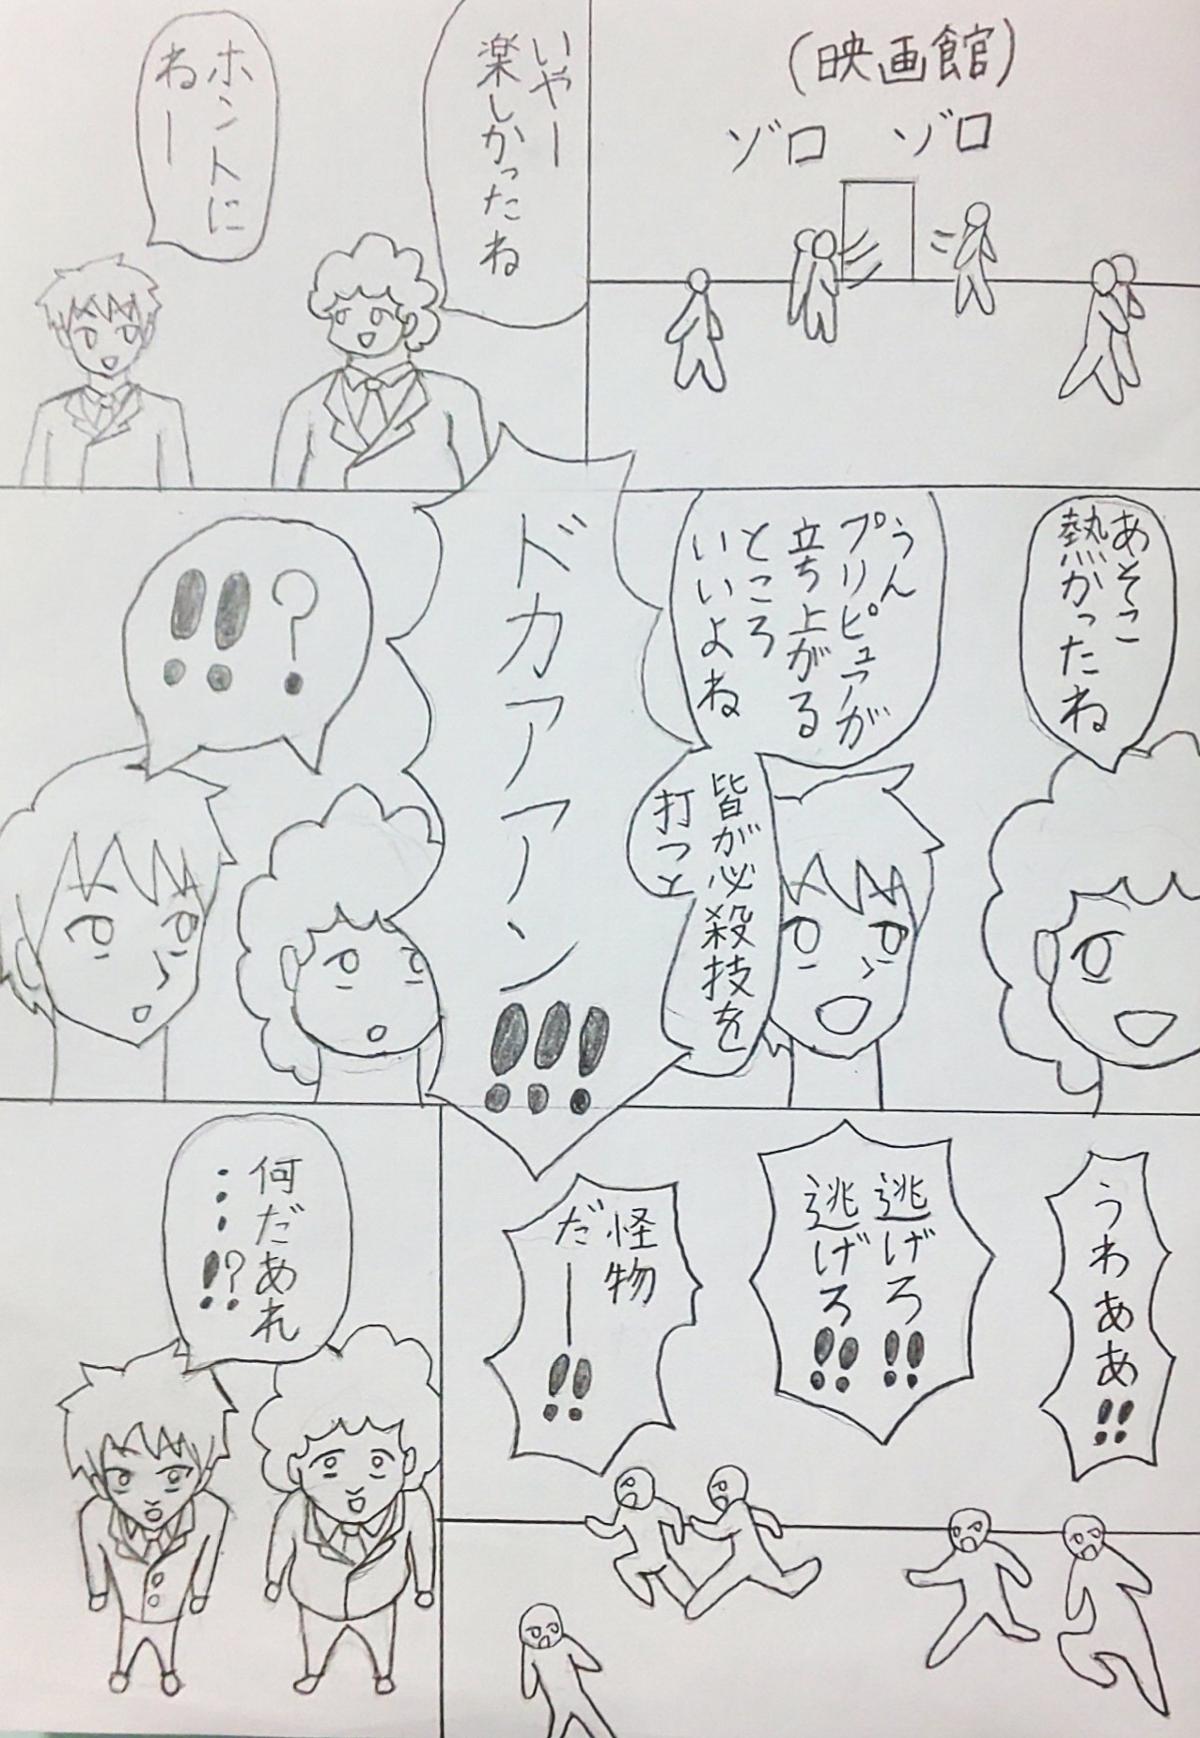 (映画館)
ゾロ ゾロ
いやー
楽しかったね
ホントに
ねー
あそこ
熱かったね
うん
プリピュアが
立ち上がる
ところ
いいよね
皆が必殺技を
打つと
ドカアアアン!!!
!!?
うわああ!!
逃げろ!!
逃げろ!!
怪物
だー!!
何だあれ
…!?